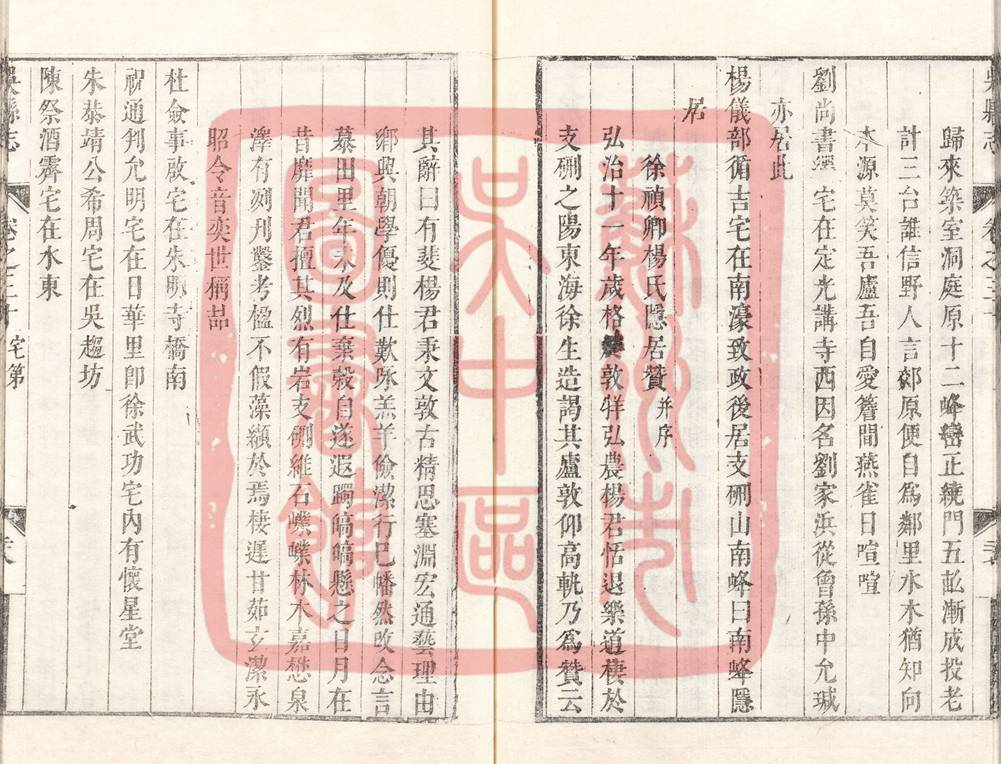 吳縣志
卷之三十
歸來築室洞庭原十二峰巒正繞門五畝漸成投老
計三台誰信野人言郊原便自爲鄰里水木猶知向
本源莫笑吾廬吾自愛簷間燕雀日喧喧
劉尚書纓宅在定光講寺西因名劉家浜從曾孫中允瑊
亦居此
楊儀部循吉宅在南濠致政後居支硎山南峰曰南峰隱
居
徐禎卿楊氏隱居贊并序
弘治十一年歲格敦牂弘農楊君恬退樂道棲於
支硎之陽東海徐生造謁其廬敦仰高軌乃爲贊云
其辭曰有斐楊君秉文敦古精思塞淵宏通藝理由
鄉興朝學優則仕歎咏羔羊儉潔行巳幡然攺念言
慕田里年未及仕棄榖自遂遐躅皜皜懸之日月在
昔靡聞君擅其烈有岩支硎維石嶫嶫林木嘉懋泉
澤有冽刋鑿考楹不假藻纈於焉棲遲甘茹玄潔永
昭令音奕世稱喆
杜僉事啟宅在朱明寺橋南
祝通判允明宅在日華里卽徐武功宅內有懷星堂
朱恭靖公希周宅在吳趨坊
陳祭酒霽宅在水東
吳縣志
卷之三十 宅第
蘇州市
吳中區
圖書館